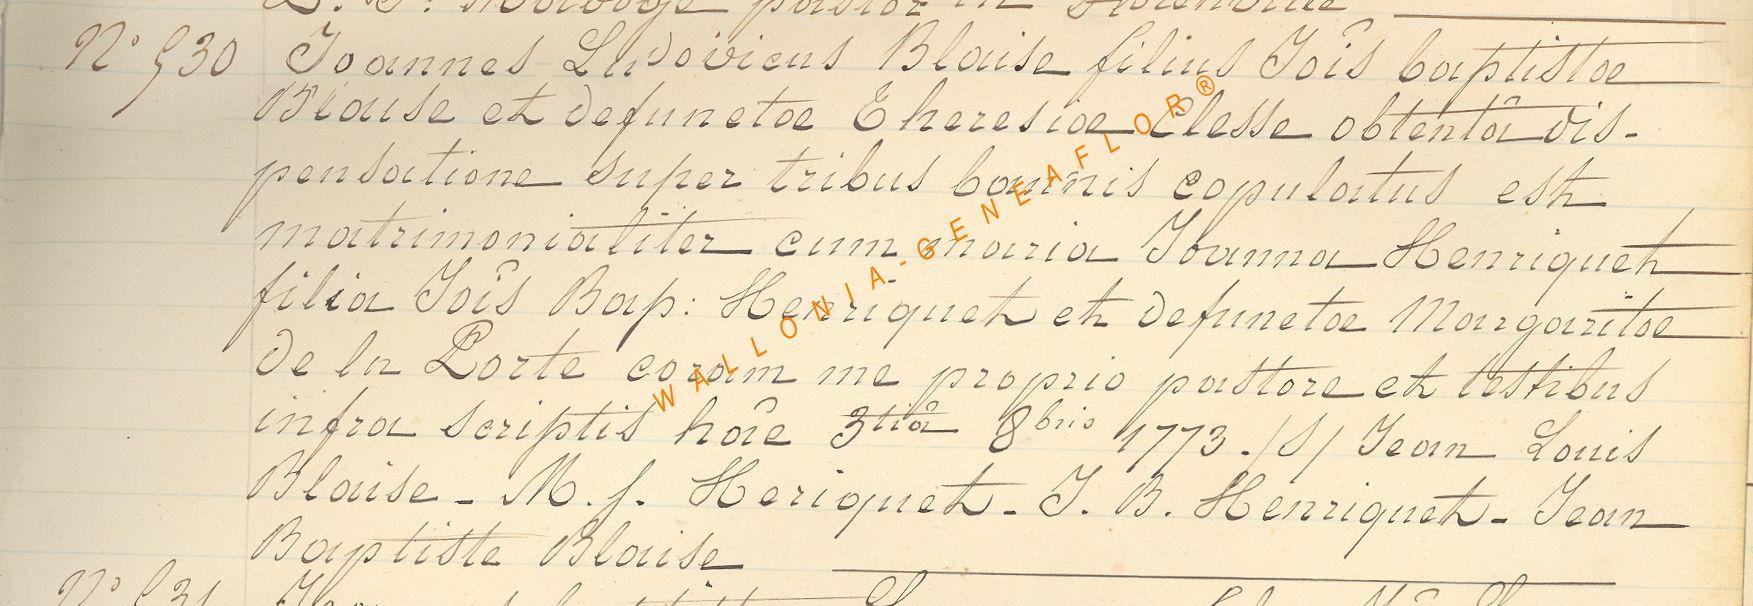 pastor in
N° 530 Joannes Ludovicus Blaise filius Joîs baptistae
Blaise et defunctae Theresiae Clesse obtentâ dis-
pensatione super tribus bannis copulatus est
matrimonialiter cum maria Joanna Henriquet
filia Joîs Bap: Henriquet et defunctae Margaritae
de la Porte coram me proprio pastore et testibus
infra scriptis hâc 3tiâ 8bris 1773. /S/ Jean Louis
Blaise - M. j. Heriquet - J. B. Henriquet - Jean
Baptiste Blaise
N° 531
WALLONIA-GENEAFLOR®